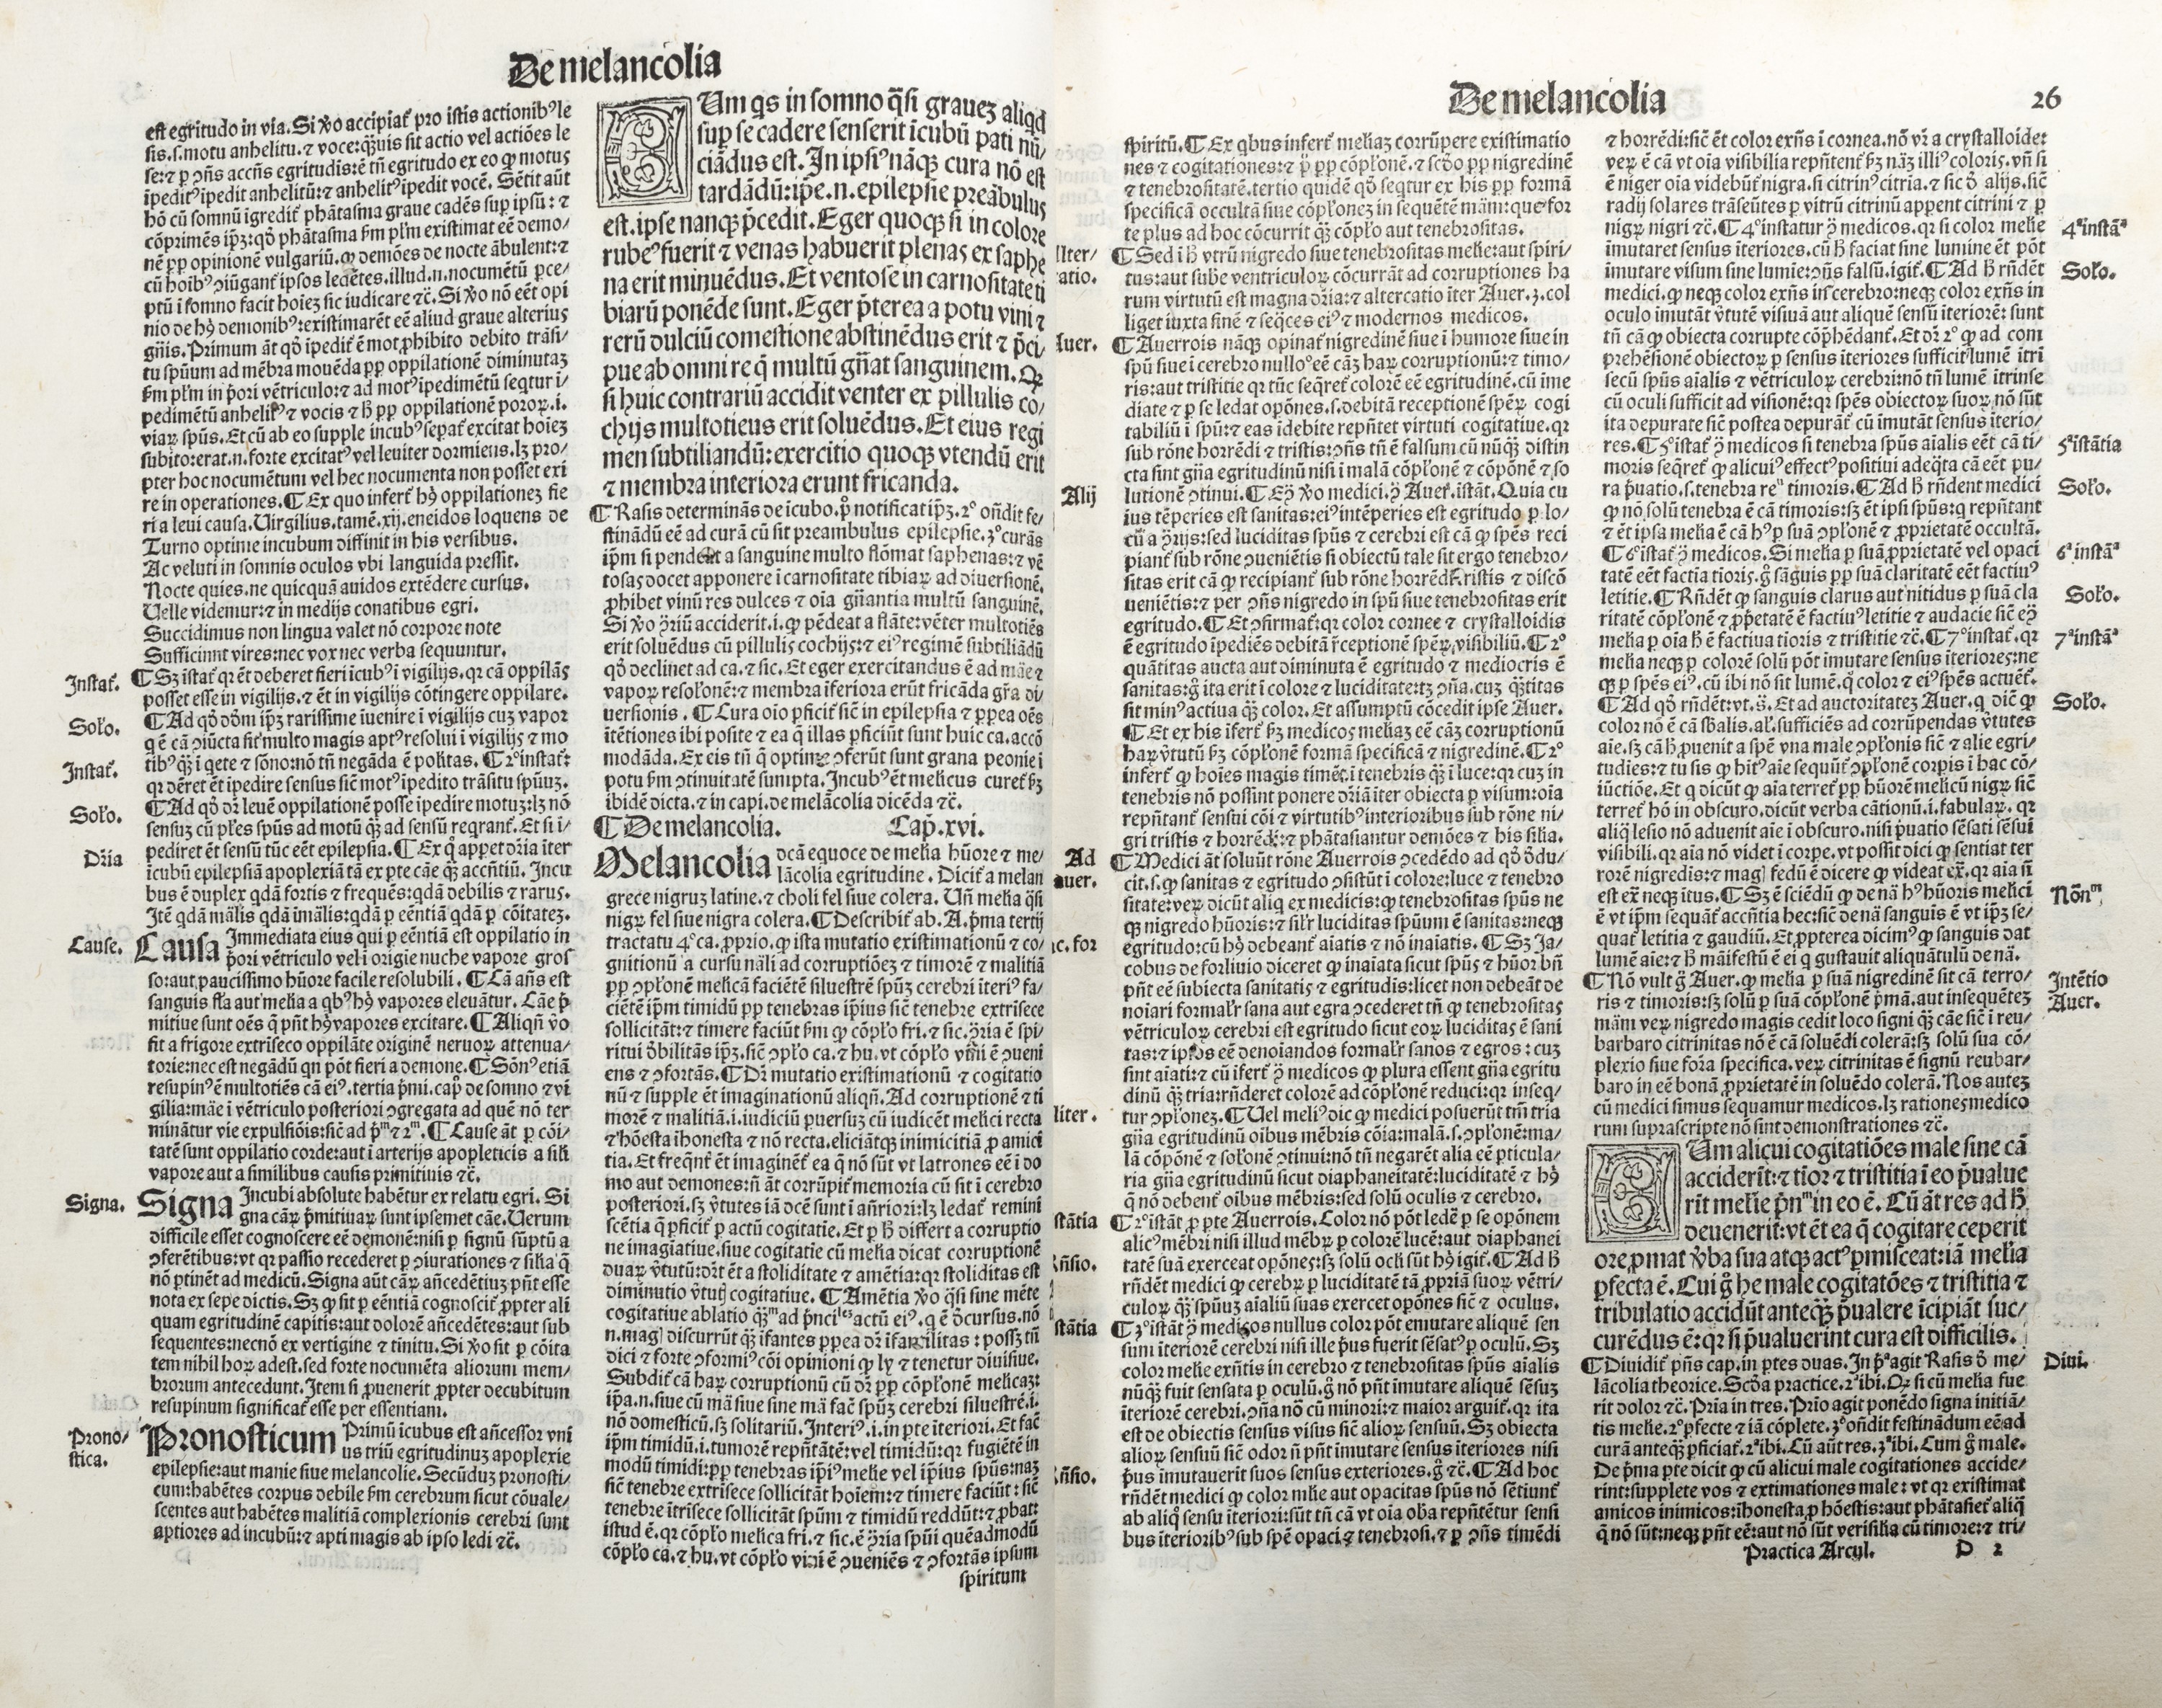 De melancolia
est egritudo in via. Si ṽo accipiat᷑ pro istis actionibꝰ le
sis.s.motu anhelitu.⁊ voce:quis sit actio vel actiões le
se:⁊ p ɔñs accñs egritudis:ẽ tñ egritudo ex eo ꝙ motus
ipeditꝰ ipedit anhelitũ:⁊ anhelitꝰ ipedit vocẽ. Sẽtit aũt
hõ cũ somnũ igredit᷑ phãtasma graue cadẽs sup ipsũ: ⁊
cõprimẽs ip̃ꝫ: qđ phãtasma ẜm pl̃m existimat eẽ demo/
nẽ pp opinionẽ vulgariũ. ꝙ demões de nocte ãbulent:⁊
cũ hoibꝰ ɔiũgant᷑ ipsos ledẽtes. illud.n.nocumẽtũ pce/
ptũ i somno facit hoiez sic iudicare ⁊c̃. Si ṽo nõ eẽt opi
nio de hꝰ demonibꝰ:existimarẽt eẽ aliud graue alterius
gñis. Primum ãt qđ ipedit᷑ ẽ mot prohibito debito trãsi/
tu spũum ad mẽbra mouẽda pp oppilationẽ diminutaꝫ
ẜm pl̃m in p̃ori vẽtriculo:⁊ ad motꝰ ipedimẽtũ seqtur i/
pedimẽtũ anhelitꝰ ⁊ vocis ⁊ h̃ pp oppilationẽ pororꝝ .i.
viarꝝ spũs. Et cũ ab eo supple incubꝰ sepat᷑ excitat hoieꝫ
subito:erat.n.forte excitatꝰ vel leuiter dormiens. lꝫ pro/
pter hoc nocumẽtum vel hec nocumenta non posset exi
re in operationes. ¶ Ex quo infert᷑ hꝰ oppilationeꝫ fie
ri a leui causa. Virgilius.tamẽ.xij.eneidos loquens de
Turno optime incubum diffinit in his versibus.
Ac veluti in somnis oculos vbi languida pressit.
Nocte quies. ne quicquã auidos extẽdere cursus.
Velle videmur:⁊ in medijs conatibus egri.
Succidimus non lingua valet nõ corpore note
Sufficiunt vires:nec vox nec verba sequuntur.
Instat᷑. ¶ Sꝫ istat᷑ qꝛ ẽt deberet fieri icubꝰ i vigilijs.qꝛ cã oppilãs
posset esse in vigilijs. ⁊ ẽt in vigilijs cõtingere oppilare.
Solo. ¶ Ad qđ dõm ip̃ꝫ rarissime iuenire i vigilijs cuꝫ vapor
q ẽ cã ɔiũcta sit multo magis aptꝰ resolui i vigilijs ⁊ mo
Instat᷑. tibꝰ q̃ꝫ i qete ⁊ sõno:nõ tñ negãda ẽ possibilitas. ¶ 2ꝰ instat᷑:
qꝛ dẽret ẽt ipedire sensus sicut motꝰ ipedito trãsitu spũuꝫ.
Solo. ¶ Ad qđ dꝛ leuẽ oppilationẽ posse ipedire motuꝫ:lꝫ nõ
sensuꝫ cũ pl̃es spũs ad motũ q̃ꝫ ad sensũ reqrant᷑. Et si i/
Dr̃ia pediret ẽt sensũ tũc eẽt epilepsia. ¶ Ex q̃ appet dr̃ia iter
icubũ epilepsiã apoplexiã tã ex pte cãe q̃ꝫ accñtiũ. Incu
bus ẽ duplex qdã fortis ⁊ frequẽs:qdã debilis ⁊ rarus.
Itẽ qdã mãlis qdã imãlis:qdã p eẽntiã qdã p cõitateꝫ.
Cause. Causa Immediata eius qui p eẽntiã est oppilatio in
p̃ori vẽtriculo vel i origie nuche vapore gros
so:aut paucissimo hũore facile resolubili. ¶ Cã añs est
sanguis fl̃a aut melia a qbꝰ hꝰ vapores eleuãtur. Cãe p̃
mitiue sunt oẽs q̃ pñt hꝰ vapores excitare. ¶ Aliqñ ṽo
fit a frigore extrĩseco oppilãte originẽ neruorꝝ attenua/
torie:nec est negãdũ qn põt fieri a demone. ¶ Sõnꝰ etiã
resupinꝰ ẽ multotiẽs cã eiꝰ. tertia p̃mi.cap̃ de somno ⁊ vi
gilia:mãe i vẽtriculo posteriori ɔgregata ad quẽ nõ ter
minãtur vie expulsiõis:sicut ad p̃ᵐ ⁊ 2ᵐ. ¶ Cause ãt p cõi/
tatẽ sunt oppilatio corde:aut i arterijs apopleticis a sili
vapore aut a similibus causis primitiuis ⁊c̃.
Signa. Signa Incubi absolute habẽtur ex relatu egri. Si
gna cãrꝝ p̃mitiuarꝝ sunt ipsemet cãe. Verum
difficile esset cognoscere eẽ demonẽ:nisi p signũ sũptũ a
ɔferẽtibus:vt qꝛ passio recederet p ɔiurationes ⁊ silia q̃
nõ ptinẽt ad medicũ. Signa aũt cãrꝝ añcedẽtiuꝫ pñt esse
nota ex sepe dictis. Sꝫ ꝙ sit p eẽntiã cognoscit᷑ propter ali
quam egritudinẽ capitis:aut dolorẽ añcedẽtes:aut sub
sequentes:necnõ ex vertigine ⁊ tinitu. Si ṽo sit p cõita
tem nihil horꝝ adest.sed forte nocumẽta aliorum mem/
brorum antecedunt. Item si prouenerit propter decubitum
resupinum significat᷑ esse per essentiam.
Prono/ stica. Pronosticum Primũ icubus est añcessor vni
us triũ egritudinuꝫ apoplexie
epilepsie:aut manie siue melancolie. Secũduꝫ pronosti/
cum:habẽtes corpus debile ẜm cerebrum sicut cõuale/
scentes aut habẽtes malitiã complexionis cerebri sunt
aptiores ad incubũ:⁊ apti magis ab ipso ledi ⁊c̃.
Cum qs in somno q̃si graueꝫ aliqd
sup se cadere senserit icubũ pati nũ/
ciãdus est. In ipsiꝰ nãqꝫ cura nõ est
tardãdũ:ip̃e.n.epilepsie preãbulus
est.ipse nanqꝫ p̃cedit. Eger quoqꝫ si in colore
rubeꝰ fuerit ⁊ venas habuerit plenas ex saphe
na erit minuẽdus. Et ventose in carnositate ti
biarũ ponẽde sunt. Eger p̃terea a potu vini ⁊
rerũ dulciũ comestione abstinẽdus erit ⁊ p̃ci/
pue ab omni re q̃ multũ gñat sanguinem. Qꝫ
si huic contrariũ accidit venter ex pillulis co/
chijs multotiens erit soluẽdus. Et eius regi
men subtiliandũ:exercitio quoqꝫ vtendũ erit
⁊ membra interiora erunt fricanda.
¶ Rasis determinãs de icubo.p̃ notificat ip̃ꝫ.2ꝰ oñdit fe/
stinãdũ eẽ ad curã cũ sit preambulus epilepsie.3ꝰ curãs
ip̃m si pendeat a sanguine multo flõmat saphenas:⁊ vẽ
tosas docet apponere i carnositate tibiarꝝ ad diuersionẽ.
prohibet vinũ res dulces ⁊ oia gñantia multũ sanguinẽ.
Si ṽo ɔ̃riũ acciderit.i. ꝙ pẽdeat a flãte:vẽter multotiẽs
erit soluẽdus cũ pillulis cochijs:⁊ eiꝰ regimẽ subtiliãdũ
qđ declinet ad ca.⁊ sic. Et eger exercitandus ẽ ad mãe ⁊
vaporꝝ resolonẽ:⁊ membra iferiora erũt fricãda gr̃a di/
uersionis. ¶ Cura oio pficit᷑ sicut in epilepsia ⁊ ppea oẽs
itẽtiones ibi posite ⁊ ea q̃ illas pficiũt sunt huic ca.accõ
modãda. Ex eis tñ q̃ optime ɔferũt sunt grana peonie i
potu ẜm ɔtinuitatẽ sumpta. Incubꝰ ẽt melicus curet᷑ ẜꝫ
ibidẽ dicta.⁊ in capi.de melãcolia dicẽda ⁊c̃.
¶ De melancolia. Cap̃.xvi.
Melancolia dcã equoce de melia hũore ⁊ me/
lãcolia egritudine. Dicit᷑ a melan
grece nigruꝫ latine.⁊ choli fel siue colera. Vñ melia q̃si
nigrꝝ fel siue nigra colera. ¶ Describit᷑ ab.A.p̃ma tertij
tractatu 4ꝰ ca.proprio.ꝙ ista mutatio existimationũ ⁊ co/
gnitionũ a cursu nãli ad corruptiõeꝫ ⁊ timorẽ ⁊ malitiã
pp ɔplonẽ melicã faciẽtẽ siluestrẽ spũꝫ cerebri iteriꝰ fa/
ciẽtẽ ip̃m timidũ pp tenebras ip̃ius sicut tenebre extrisece
sollicitãt:⁊ timere faciũt ẜm ꝙ cõplo fri.⁊ sic.ɔ̃ria ẽ spi/
ritui đbilitãs ip̃ꝫ.sicut ɔplo ca.⁊ hu.vt cõplo vini ẽ ɔueni
ens ⁊ ɔfortãs. ¶ Dꝛ mutatio existimationũ ⁊ cogitatio
nũ ⁊ supple ẽt imaginationũ aliqñ. Ad corruptionẽ ⁊ ti
morẽ ⁊ malitiã.i.iudiciũ puersuꝫ cũ iudicẽt melici recta
⁊ hõesta ihonesta ⁊ nõ recta.eliciãtqꝫ inimicitiã pro amici
tia. Et freqñt᷑ ẽt imaginẽt᷑ ea q̃ nõ sũt vt latrones eẽ i do
mo aut demones:ñ ãt corrũpit᷑ memoria cũ sit i cerebro
posteriori.sꝫ ṽtutes iã dcẽ sunt i añriori:lꝫ ledat᷑ remini
scẽtia q̃ pficit᷑ p actũ cogitatie. Et p h̃ differt a corruptio
ne imagiatiue.siue cogitatie cũ melia dicat corruptionẽ
duarꝝ ṽtutũ:dr̃t ẽt a stoliditate ⁊ amẽtia:qꝛ stoliditas est
diminutio ṽtutis cogitatiue. ¶ Amẽtia ṽo q̃si sine mẽte
cogitatiue ablatio q̃ꝫᵐ ad p̃ncipales actũ eiꝰ.q̃ ẽ đcursus.nõ
n.magis discurrũt q̃ꝫ ifantes ppea dꝛ ifantilitas: possꝫ tñ
dici ⁊ forte ɔformiꝰ cõi opinioni ꝙ ly ⁊ tenetur diuisiue.
Subdit᷑ cã harꝝ corruptionũ cũ dꝛ pp cõplonẽ melicaꝫ:
ip̃a.n.siue cũ mã siue sine mã facit spũꝫ cerebri siluestrẽ.i.
nõ domesticũ.sꝫ solitariũ. Interiꝰ.i.in pte iteriori. Et facit
ip̃m timidũ.i.tumorẽ repñtãtẽ:vel timidũ:qꝛ fugiẽtẽ in
modũ timidi:pp tenebras ip̃iꝰ melie vel ip̃ius spũs:naꝫ
sicut tenebre extrisece sollicitãt hoiem:⁊ timere faciũt: sicut
tenebre itrĩsece sollicitãt spũm ⁊ timidũ reddũt:⁊ probat᷑
istud ẽ.qꝛ cõplo melica fri.⁊ sic.ẽ ɔ̃ria spũi quẽadmodũ
cõplo ca.⁊ hu.vt cõplo vini ẽ ɔueniẽs ⁊ ɔfortãs ipsum
spiritum
De melancolia
26
spiritũ. ¶ Ex qbus infert᷑ meliaꝫ corrũpere existimatio
nes ⁊ cogitationes:⁊ p̃ pp cõplonẽ.⁊ scđo pp nigredinẽ
⁊ tenebrositatẽ.tertio quidẽ qđ seqtur ex his pp formã
specificã occultã siue cõplonez in sequẽtẽ mãm:que for
te plus ad hoc cõcurrit q̃ꝫ cõplo aut tenebrositas.
lter/ atio. ¶ Sed i h̃ vtrũ nigredo siue tenebrositas melie:aut spiri/
tus:aut sube ventriculorꝝ cõcurrãt ad corruptiones ha
rum virtutũ est magna dr̃ia:⁊ altercatio iter Auer.3.col
liget iuxta finẽ ⁊ seqces eiꝰ ⁊ modernos medicos.
Auer. ¶ Auerrois nãqꝫ opinat᷑ nigredinẽ siue i humore siue in
spũ siue i cerebro nulloꝰ eẽ cãꝫ harꝝ corruptionũ:⁊ timo/
ris:aut tristitie qꝛ tũc seqret᷑ colorẽ eẽ egritudinẽ.cũ ime
diate ⁊ p se ledat opões.s.debitã receptionẽ spẽrꝝ cogi
tabiliũ i spũ:⁊ eas idebite repñtet virtuti cogitatiue.qꝛ
sub rõne horrẽdi ⁊ tristis:ɔñs tñ ẽ falsum cũ nũqꝫ distin
cta sint gña egritudinũ nisi i malã cõplonẽ ⁊ cõpõnẽ ⁊ so
Alij lutionẽ ɔtinui. ¶ Ex̃ ṽo medici.ɔ̃ Auer.istãt. Quia cu
ius tẽperies est sanitas:eiꝰ intẽperies est egritudo p lo/
cũ a ɔ̃rijs:sed luciditas spũs ⁊ cerebri est cã ꝙ spẽs reci
piant᷑ sub rõne ɔueniẽtis si obiectũ tale sit ergo tenebro/
sitas erit cã ꝙ recipiant᷑ sub rõne horrẽdi tristis ⁊ discõ
ueniẽtis:⁊ per ɔñs nigredo in spũ siue tenebrositas erit
egritudo. ¶ Et ɔfirmat᷑:qꝛ color cornee ⁊ crystalloidis
ẽ egritudo ipediẽs debitã receptionẽ spẽrꝝ visibiliũ. ¶ 2ꝰ
quãtitas aucta aut diminuta ẽ egritudo ⁊ mediocris ẽ
sanitas:g̃ ita erit i colore ⁊ luciditate:tꝫ ɔña.cuꝫ q̃titas
sit minꝰ actiua q̃ꝫ color. Et assumptũ cõcedit ipse Auer.
¶ Et ex his ifert᷑ ẜꝫ medicos meliaꝫ eẽ cãꝫ corruptionũ
harꝝ ṽtutũ ẜꝫ cõplonẽ formã specificã ⁊ nigredinẽ. ¶ 2ꝰ
infert᷑ ꝙ hoies magis timẽt i tenebris q̃ꝫ i luce:qꝛ cuꝫ in
tenebris nõ possint ponere dr̃iã iter obiecta p visum:oia
repñtant᷑ sensui cõi ⁊ virtutibꝰ interioribus sub rõne ni/
gri tristis ⁊ horrẽdi:⁊ phãtasiantur demões ⁊ his silia.
Ad auer. ¶ Medici ãt soluũt rõne Auerrois ɔcedẽdo ad qđ đdu/
cit.s.ꝙ sanitas ⁊ egritudo ɔsistũt i colore:luce ⁊ tenebro
sitate:verꝝ dicũt aliq ex medicis:ꝙ tenebrositas spũs ne
qꝫ nigredo hũoris:⁊ silr luciditas spũum ẽ sanitas:neqꝫ
c. for egritudo:cũ hꝰ debeant᷑ aiatis ⁊ nõ inaiatis. ¶ Sꝫ Ja/
cobus de forliuio diceret ꝙ inaiata sicut spũs ⁊ hũor bñ
pñt eẽ subiecta sanitatis ⁊ egritudis:licet non debeãt de
noiari formalr sana aut egra ɔcederet tñ ꝙ tenebrositas
vẽtriculorꝝ cerebri est egritudo sicut eorꝝ luciditas ẽ sani
tas:⁊ ipsos eẽ denoiandos formalr sanos ⁊ egros: cuꝫ
sint aiati:⁊ cũ ifert᷑ ɔ̃ medicos ꝙ plura essent gña egritu
dinũ q̃ꝫ tria:rñderet colorẽ ad cõplonẽ reduci:qꝛ inseq/
liter. tur ɔploneꝫ. ¶ Vel meliꝰ dic ꝙ medici posuerũt tm̃ tria
gña egritudinũ oibus mẽbris cõia:malã.s.ɔplonẽ:ma/
lã cõpõnẽ ⁊ solonẽ ɔtinui:nõ tñ negarẽt alia eẽ pticula/
ria gña egritudinũ sicut diaphaneitatẽ:luciditatẽ ⁊ hꝰ
q̃ nõ debent᷑ oibus mẽbris:sed solũ oculis ⁊ cerebro.
stãtia ¶ 2ꝰ istãt᷑ p pte Auerrois. Color nõ põt ledẽ p se opõnem
alicꝰ mẽbri nisi illud mẽbꝝ p colorẽ lucẽ:aut diaphanei
ñsio. tatẽ suã exerceat opões:sꝫ solũ ocli sũt hꝰ igit᷑. ¶ Ad h̃
rñdẽt medici ꝙ cerebꝝ p luciditatẽ tã propriã suorꝝ vẽtri/
culorꝝ q̃ꝫ spũuꝫ aialiũ suas exercet opões sicut ⁊ oculus.
stãtia ¶ 3ꝰ istãt᷑ ɔ̃ medicos nullus color põt emutare aliquẽ sen
sum iteriorẽ cerebri nisi ille p̃us fuerit sẽsatꝰ p oculũ. Sꝫ
color melie exñtis in cerebro ⁊ tenebrositas spũs aialis
nũqꝫ fuit sensata p oculũ.g̃ nõ pñt imutare aliquẽ sẽsuꝫ
iteriorẽ cerebri.ɔña nõ cũ minori:⁊ maior arguit᷑.qꝛ ita
est de obiectis sensus visus sicut aliorꝝ sensuũ. Sꝫ obiecta
aliorꝝ sensuũ sicut odor ñ pñt imutare sensus iteriores nisi
ñsio. p̃us imutauerit suos sensus exteriores.g̃ ⁊c̃. ¶ Ad hoc
rñdẽt medici ꝙ color melie aut opacitas spũs nõ sẽtiunt᷑
ab aliqͦ sensu iteriori:sũt tñ cã vt oia oba repñtẽtur sensi
bus iterioribꝰ sub spẽ opaci ⁊ tenebrosi.⁊ p ɔñs timẽdi
⁊ horrẽdi:sicut ẽt color exñs i cornea.nõ vr̃ a crystalloide:
verꝝ ẽ cã vt oia visibilia repñtent᷑ ẜꝫ nãꝫ illiꝰ coloris.vñ si
ẽ niger oia videbũt᷑ nigra.si citrinꝰ citria.⁊ sic đ alijs.sicut
radij solares trãseũtes p vitrũ citrinũ apparent citrini ⁊ p
4ª instãª nigrꝝ nigri ⁊c̃. ¶ 4ꝰ instatur ɔ̃ medicos.qꝛ si color melie
imutaret sensus iteriores.cũ h̃ faciat sine lumine ẽt põt
Solo. imutare visum sine lumie:ɔñs falsũ.igit᷑. ¶ Ad h̃ rñdẽt
medici.ꝙ neqꝫ color exñs in cerebro:neqꝫ color exñs in
oculo imutãt ṽtutẽ visiuã aut aliquẽ sensũ iteriorẽ: sunt
tñ cã ꝙ obiecta corrupte cõp̃hẽdant᷑. Et dꝛ 2ꝰ ꝙ ad com
prehẽsionẽ obiectorꝝ p sensus iteriores sufficit lumẽ itri
secũ spũs aialis ⁊ vẽtriculorꝝ cerebri:nõ tñ lumẽ itrinse
cũ oculi sufficit ad visionẽ:qꝛ spẽs obiectorꝝ suorꝝ nõ sũt
ita depurate sicut postea depurãt᷑ cũ imutãt sensus iterio/
5ª istãtia res. ¶ 5ꝰ istat᷑ ɔ̃ medicos si tenebra spũs aialis eẽt cã ti/
moris seqret᷑ ꝙ alicuiꝰ effectꝰ positiui adeqta cã eẽt pu/
Solo. ra p̃uatio.s.tenebra reᵘ timoris. ¶ Ad h̃ rñdent medici
ꝙ nõ solũ tenebra ẽ cã timoris:sꝫ ẽt ipsi spũs:q repñtant᷑
⁊ ẽt ipsa melia ẽ cã hꝰ p suã ɔplonẽ ⁊ proprietatẽ occultã.
6ª instãª ¶ 6ꝰ istat᷑ ɔ̃ medicos. Si melia p suã proprietatẽ vel opaci
tatẽ eẽt factia tioris.g̃ sãguis pp suã claritatẽ eẽt factiuꝰ
Solo. letitie. ¶ Rñdẽt ꝙ sanguis clarus aut nitidus p suã cla
ritatẽ cõplonẽ ⁊ prop̃etatẽ ẽ factiuꝰ letitie ⁊ audacie sicut eɔ̃
7ª instãª melia p oia h̃ ẽ factiua tioris ⁊ tristitie ⁊c̃. ¶ 7ꝰ instat᷑.qꝛ
melia neqꝫ p colorẽ solũ põt imutare sensus iteriores:ne
qꝫ p spẽs eiꝰ.cũ ibi nõ sit lumẽ.q̃ color ⁊ eiꝰ spẽs actuẽt᷑.
Solo. ¶ Ad qđ rñdẽt:vt.s̃. Et ad auctoritatez Auer.q dicit ꝙ
color nõ ẽ cã sb̃alis.al̃.sufficiẽs ad corrũpendas ṽtutes
aie.sꝫ cã h̃ prouenit a spẽ vna male ɔplonis sicut ⁊ alie egri/
tudies:⁊ tu sis ꝙ hitꝰ aie sequũt᷑ ɔplonẽ corpis i hac cõ/
iũctiõe. Et q dicũt ꝙ aia terret᷑ pp hũorẽ melicũ nigrꝝ sicut
terret᷑ hõ in obscuro.dicũt verba cãtionũ.i.fabularꝝ.qꝛ
aliq̃ lesio nõ aduenit aie i obscuro.nisi p̃uatio sẽsati sẽsui
visibili.qꝛ aia nõ videt i corpe.vt possit dici ꝙ sentiat ter
rorẽ nigredis:⁊ magis fedũ ẽ dicere ꝙ videat ex̃.qꝛ aia si
Nõnᵐ. est ex̃ neqꝫ itus. ¶ Sꝫ ẽ sciẽdũ ꝙ de nã hꝰ hũoris melici
ẽ vt ip̃m sequãt᷑ accñtia hec:sicut de nã sanguis ẽ vt ip̃ꝫ se/
quat᷑ letitia ⁊ gaudiũ. Et propterea dicimꝰ ꝙ sanguis dat
lumẽ aie:⁊ h̃ mãifestũ ẽ ei q gustauit aliquãtulũ de nã.
Intẽtio Auer. ¶ Nõ vult g̃ Auer.ꝙ melia p suã nigredinẽ sit cã terro/
ris ⁊ timoris:sꝫ solũ p suã cõplonẽ p̃mã.aut insequẽtez
mãm verꝝ nigredo magis cedit loco signi q̃ꝫ cãe sicut i reu/
barbaro citrinitas nõ ẽ cã soluẽdi colerã:sꝫ solũ sua cõ/
plexio siue forã specifica.verꝝ citrinitas ẽ signũ reubar/
baro in eẽ bonã proprietatẽ in soluẽdo colerã. Nos autez
cũ medici simus sequamur medicos.lꝫ rationes medico
rum suprascripte nõ sint demonstrationes ⁊c̃.
Cum alicui cogitatiões male sine cã
acciderit:⁊ tior ⁊ tristitia i eo p̃ualue
rit melie p̃nᵐ in eo ẽ. Cũ ãt res ad h̃
deuenerit:vt ẽt ea q̃ cogitare ceperit
ore promat ṽba sua atqꝫ actꝰ pmisceat:iã melia
pfecta ẽ. Cui g̃ he male cogitatões ⁊ tristitia ⁊
tribulatio accidũt anteqꝫ p̃ualere icipiãt suc/
curẽdus ẽ:qꝛ si p̃ualuerint cura est difficilis.
Diui. ¶ Diuidit᷑ pñs cap.in ptes duas. In p̃ª agit Rasis đ me/
lãcolia theorice. Scđa practice.2ª ibi. Qꝫ si cũ melia fue
rit dolor ⁊c̃. Pria in tres. Prio agit ponẽdo signa initiã/
tis melie.2ꝰ pfecte ⁊ iã cõplete.3ꝰ oñdit festinãdum eẽ ad
curã anteqꝫ pficiat᷑.2ª ibi. Cũ aũt res.3ª ibi. Cum g̃ male.
De p̃ma pte dicit ꝙ cũ alicui male cogitationes accide/
rint:supplete vos ⁊ extimationes male: vt qꝛ existimat
amicos inimicos:ihonesta pro hõestis:aut phãtasiet᷑ aliq̃
q̃ nõ sũt:neqꝫ pñt eẽ:aut nõ sũt verisilia cũ timore:⁊ tri/
Practica Arcul. D 2